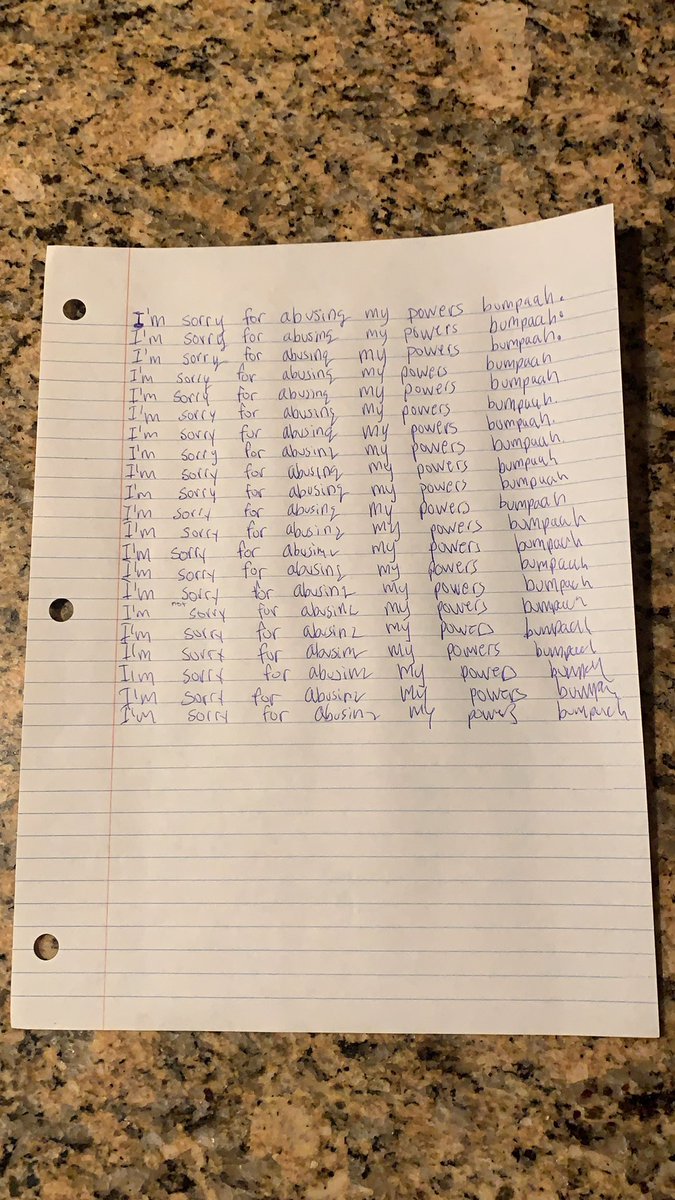 I'm sorry for abusing my powers bumpaah.
I'm sorry for abusing my powers bumpaah.
I'm sorry for abusing my powers bumpaah.
I'm sorry for abusing my powers bumpaah
I'm sorry for abusing my powers bumpaah
I'm sorry for abusing my powers bumpaah.
I'm sorry for abusing my powers bumpaah.
I'm sorry for abusing my powers bumpaah.
I'm sorry for abusing my powers bumpaah
I'm sorry for abusing my powers bumpaah
I'm sorry for abusing my powers bumpaah
I'm sorry for abusing my powers bumpaah
I'm sorry for abusing my powers bumpaah
I'm sorry for abusing my powers bumpaah
I'm sorry for abusing my powers bumpaah
I'm not sorry for abusing my powers bumpaah
I'm sorry for abusing my powers bumpaah
I'm sorry for abusing my powers bumpaah
I'm sorry for abusing my powers
I'm sorry for abusing my powers
I'm sorry for abusing my powers bumpaah